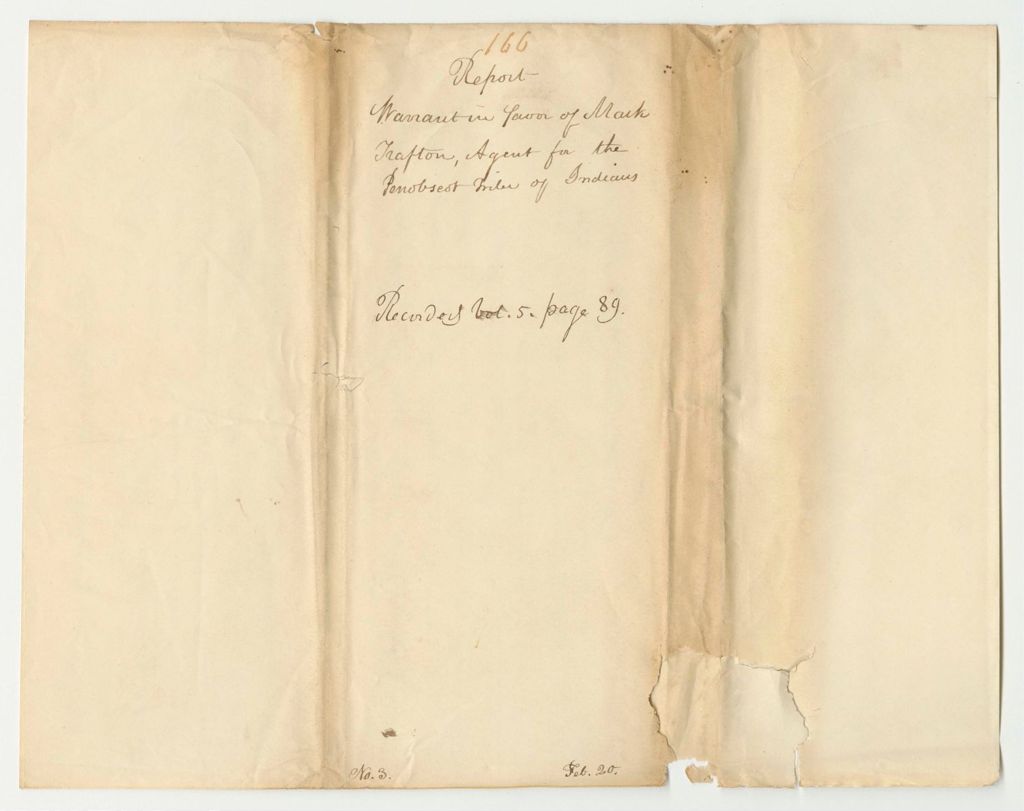 166
Report
Warrant in favor of Mark
Trafton, Agent for the
Penobscot Tribe of Indians
Recorded Vol. 5. page 89.
No. 3.
Feb. 20.